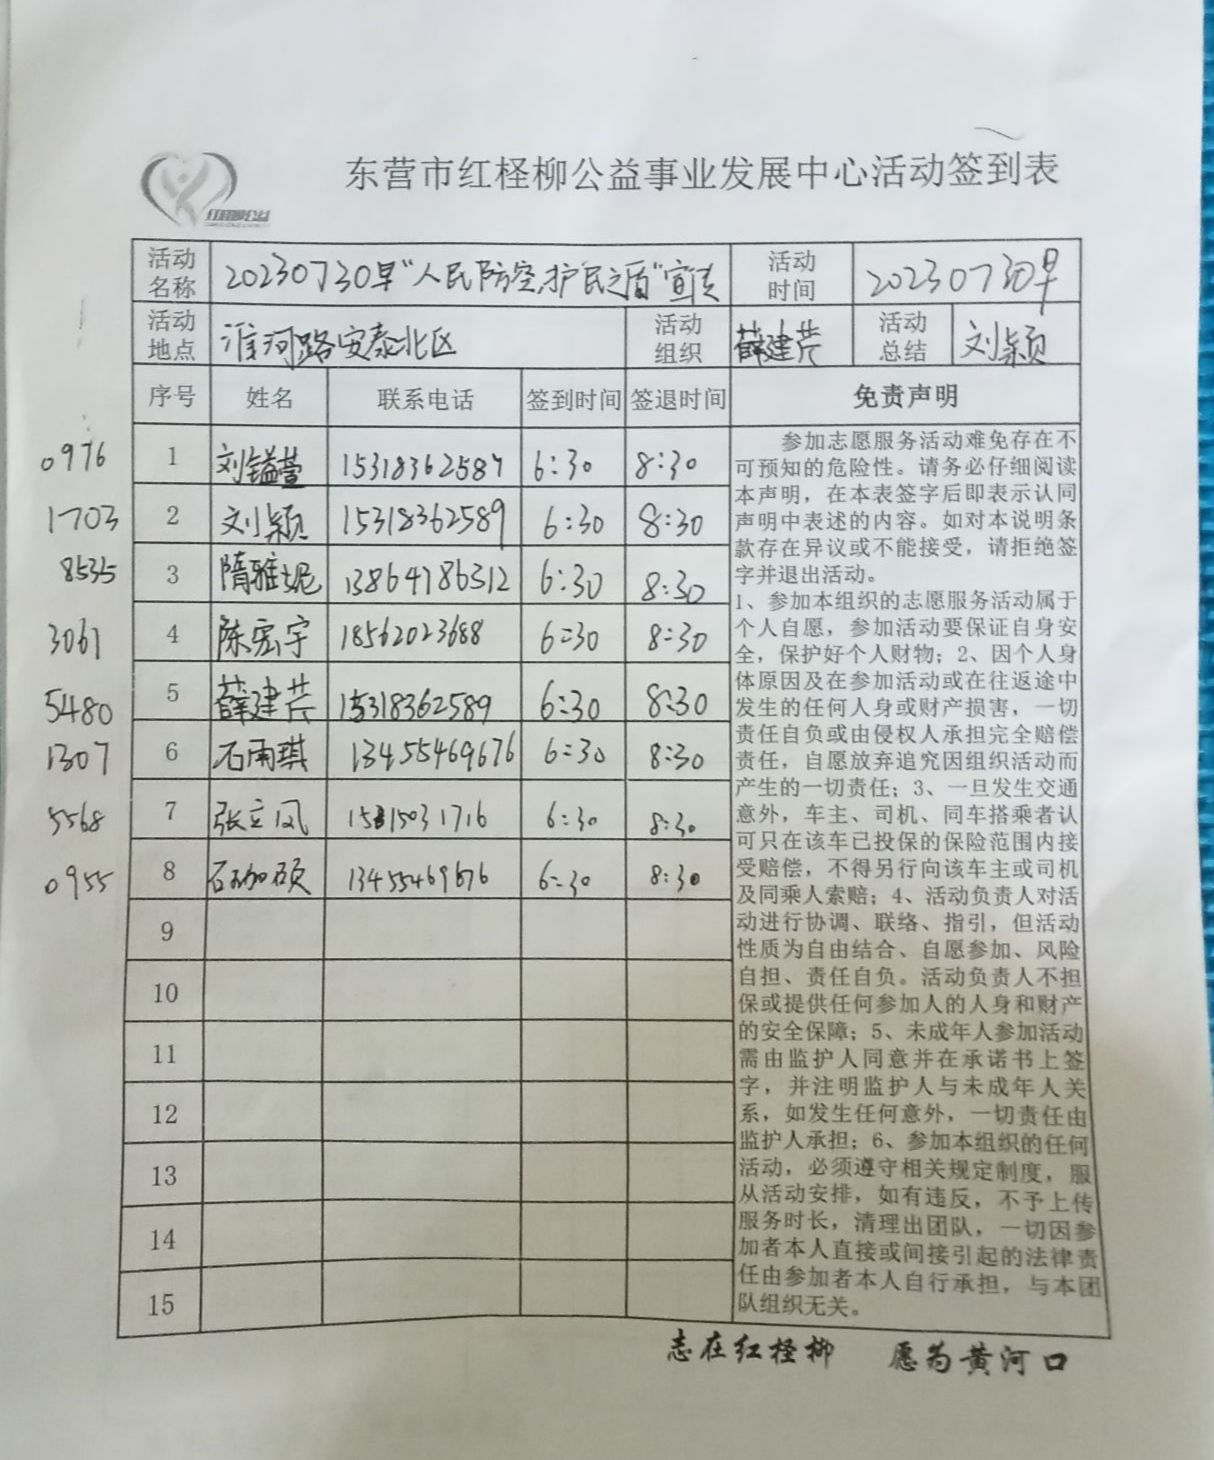 东营市红柽柳公益事业发展中心活动签到表
红柽柳公益
活动名称 20230730早“人民防空,护民之盾”宣传 活动时间 20230730早
活动地点 淮河路安泰北区 活动组织 薛建芹 活动总结 刘颖
序号 姓名 联系电话 签到时间 签退时间 免责声明
0976 1 刘镒萱 15318362589 6:30 8:30
1703 2 刘颖 15318362589 6:30 8:30
8535 3 隋雅妮 13864786312 6:30 8:30
3061 4 陈宏宇 18562023688 6:30 8:30
5480 5 薛建芹 15318362589 6:30 8:30
1307 6 石雨琪 13455469676 6:30 8:30
5568 7 张立凤 15315031716 6:30 8:30
0955 8 石珈硕 13455469676 6:30 8:30
9
10
11
12
13
14
15
参加志愿服务活动难免存在不
可预知的危险性。请务必仔细阅读
本声明,在本表签字后即表示认同
声明中表述的内容。如对本说明条
款存在异议或不能接受,请拒绝签
字并退出活动。
1、参加本组织的志愿服务活动属于
个人自愿,参加活动要保证自身安
全,保护好个人财物;2、因个人身
体原因及在参加活动或在往返途中
发生的任何人身或财产损害,一切
责任自负或由侵权人承担完全赔偿
责任,自愿放弃追究因组织活动而
产生的一切责任;3、一旦发生交通
意外,车主、司机、同车搭乘者认
可只在该车已投保的保险范围内接
受赔偿,不得另行向该车主或司机
及同乘人索赔;4、活动负责人对活
动进行协调、联络、指引,但活动
性质为自由结合、自愿参加、风险
自担、责任自负。活动负责人不担
保或提供任何参加人的人身和财产
的安全保障;5、未成年人参加活动
需由监护人同意并在承诺书上签
字,并注明监护人与未成年人关
系,如发生任何意外,一切责任由
监护人承担;6、参加本组织的任何
活动,必须遵守相关规定制度,服
从活动安排,如有违反,不予上传
服务时长,清理出团队,一切因参
加者本人直接或间接引起的法律责
任由参加者本人自行承担,与本团
队组织无关。
志在红柽柳 愿为黄河口